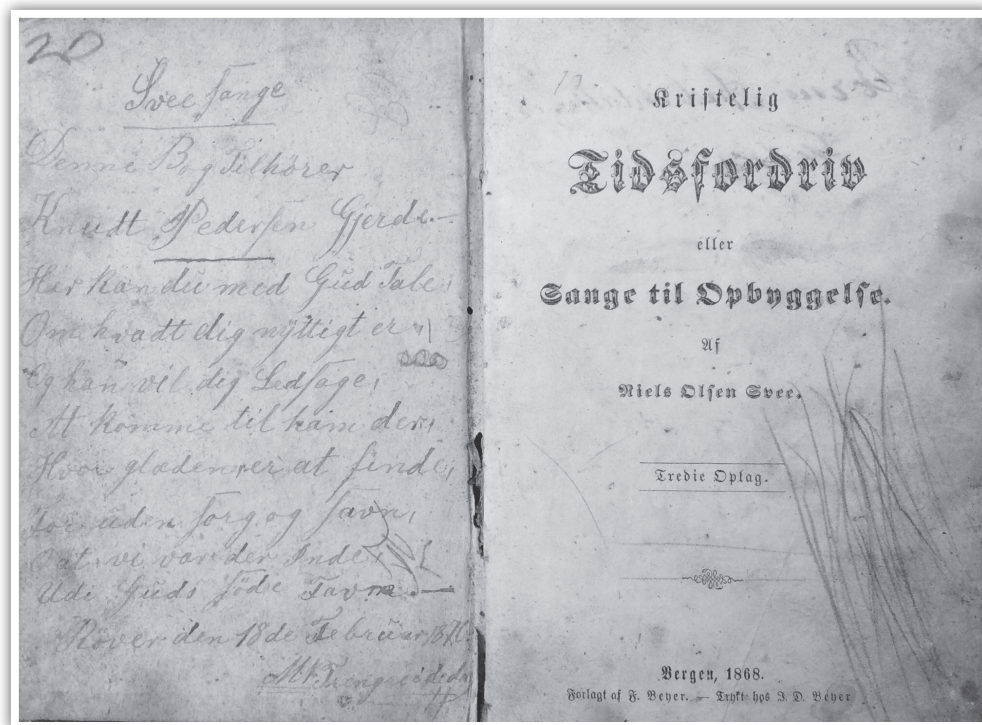 20
Svee sange
Denne Bog Tilhörer
Knudt Pedersen Gjerde.—
Her kan du med Gud Tale,
Om hvadt dig nÿttigt er,
Og han vil dig Ledsage,
At komme til ham der,
Hvor glæden er at finde,
For uden sorg og savn,
O at vi var der Inde,
Udi Guds söde Favn.—
den 18de Februar
Kristelig
Tidsfordriv
eller
Sange til Opbyggelse.
Af
Niels Olsen Svee.
Tredie Oplag.
Bergen, 1868.
Forlagt af F. Beyer. — Trykt hos J. D. Beyer